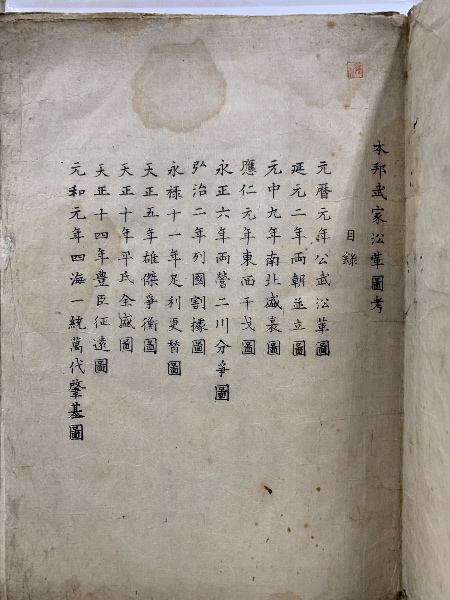 本邦武家沿革圖考
目錄
元曆元年公武沿革圖
延元二年両朝並立圖
元中九年南北盛衰圖
應仁元年東西干戈圖
永正六年両營二川分爭圖
弘治二年列國割據圖
永禄十一年足利更替圖
天正五年雄傑爭衡圖
天正十年平氏全盛圖
天正十四年豊臣征遠圖
元和元年四海一統萬代肇基圖